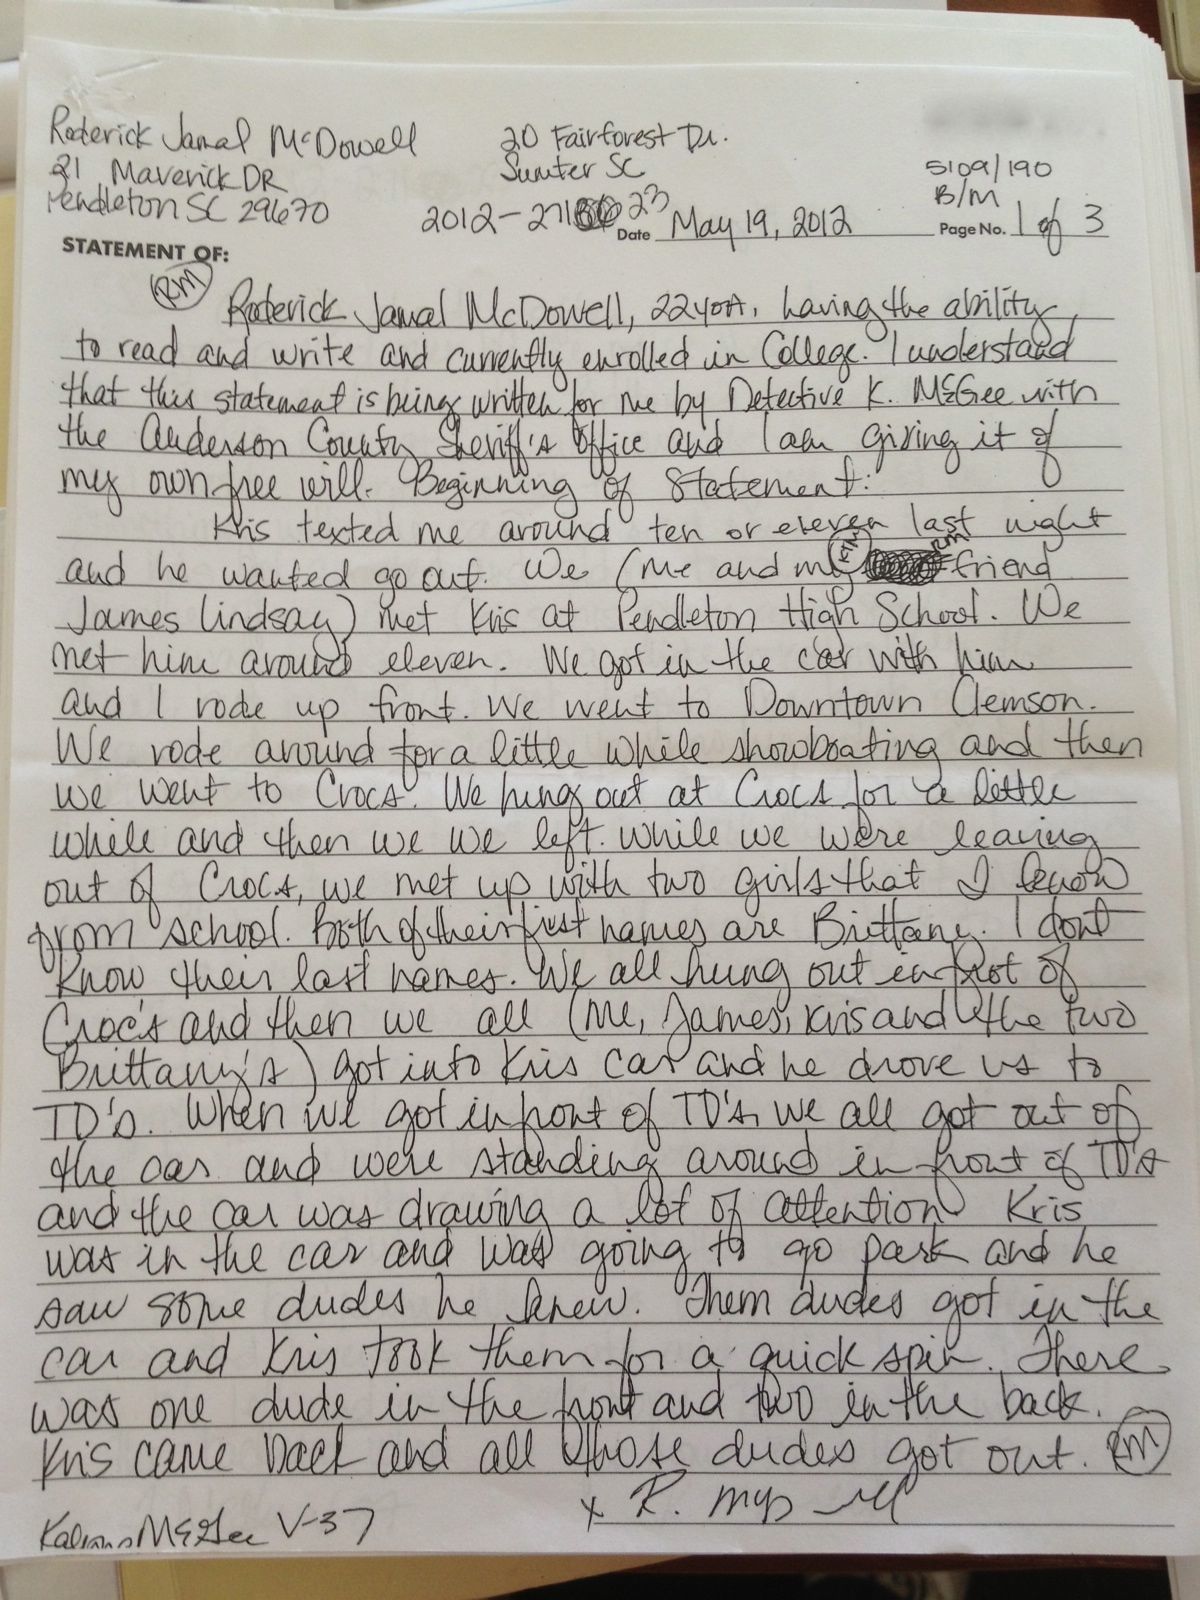 Roderick Jamal McDowell 20 Fairforest Dr.
21 Maverick DR Sumter SC 5'09/190
Pendleton SC 29670 2012-27 23 B/M
Date May 19, 2012 Page No. 1 of 3
STATEMENT OF:
RM
Roderick Jamal McDowell, 22yoa, having the ability
to read and write and currently enrolled in College. I understand
that this statement is being written for me by Detective K. McGee with
the Anderson County Sheriff's Office and I am giving it of
my own free will. Beginning of Statement:
Kris texted me around ten or eleven last night
and he wanted go out. We (me and my KM RM friend
James Lindsay) met Kris at Pendleton High School. We
met him around eleven. We got in the car with him
and I rode up front. We went to Downtown Clemson.
We rode around for a little while showboating and then
we went to Crocs. We hung out at Crocs for a little
while and then we we left. While we were leaving
out of Crocs, we met up with two girls that I know
from school. Both of their first names are Brittany. I dont
know their last names. We all hung out in front of
Croc's and then we all (me, James, Kris and the two
Brittany's) got into Kris car and he drove us to
TD's. When we got in front of TD's, we all got out of
the car and were standing around in front of TD's
and the car was drawing a lot of attention Kris
was in the car and was going to go park and he
saw some dudes he knew. Them dudes got in the
car and Kris took them for a quick spin. There
was one dude in the front and two in the back.
Kris came back and all those dudes got out. RM
x R.
McGee V-37